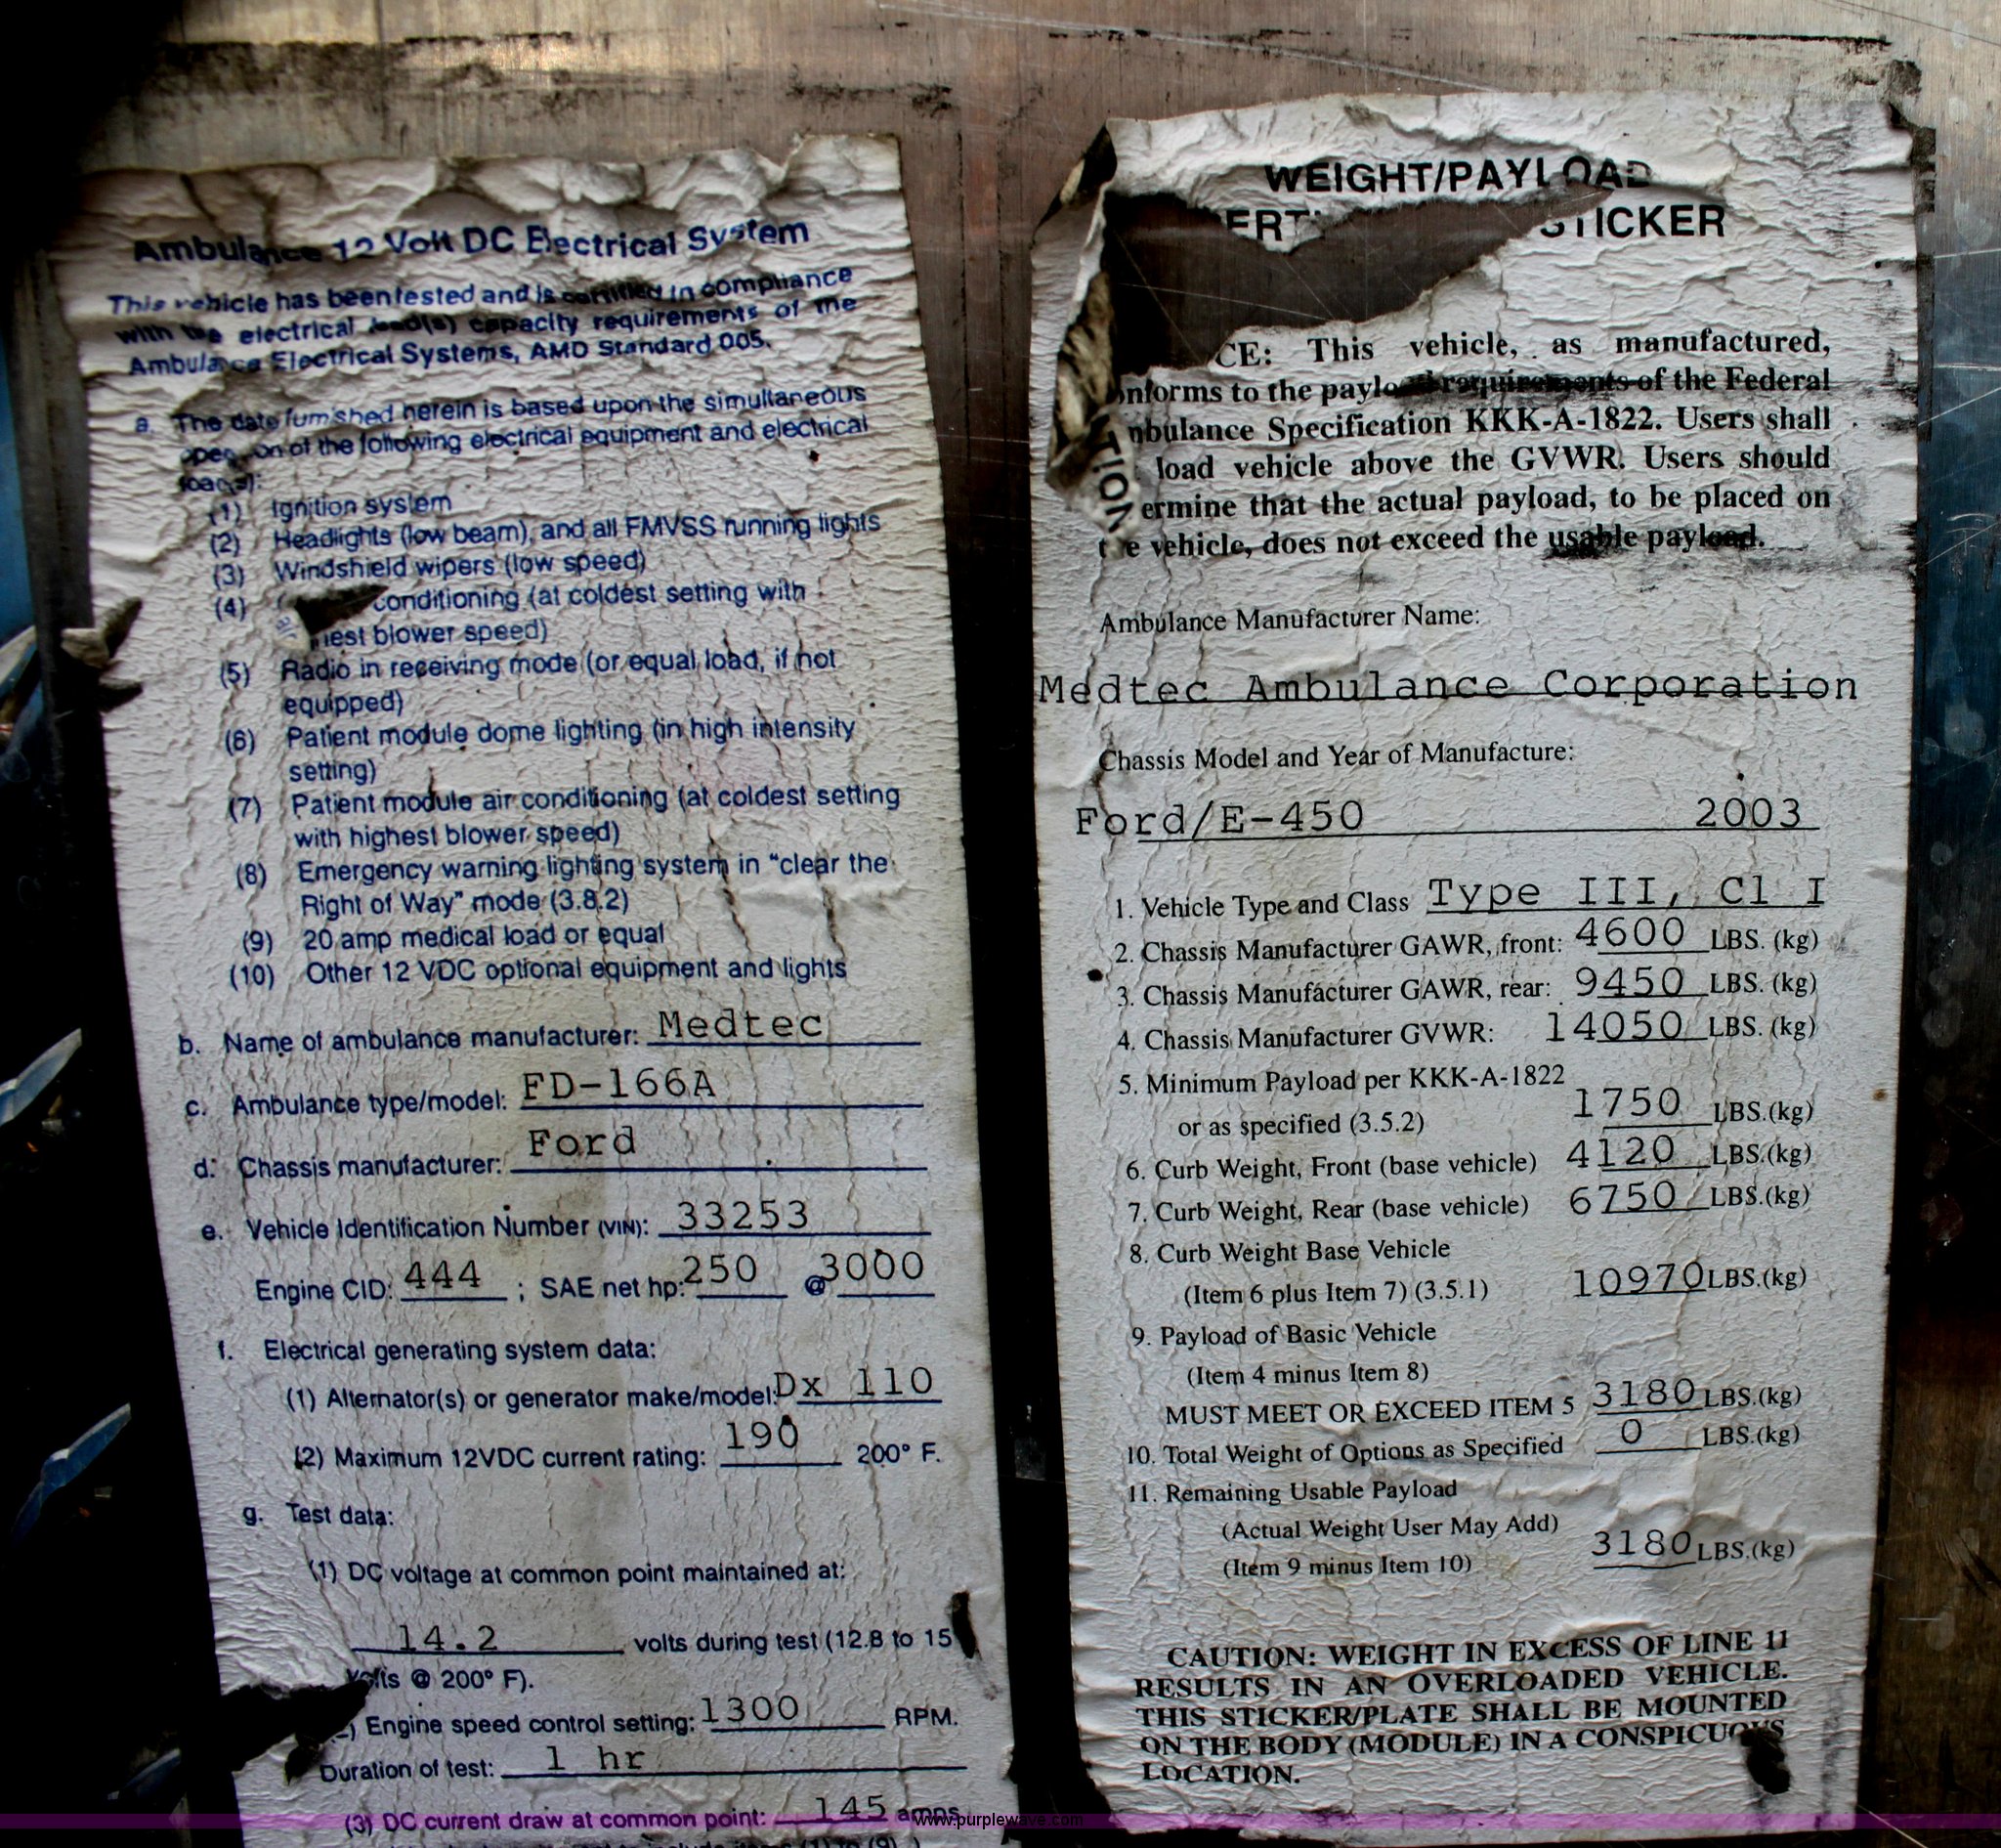 Ambulance 12 Volt DC Electrical System
This vehicle has been tested and is certified in compliance
with the electrical load(s) capacity requirements of the
Ambulance Electrical Systems, AMD Standard 005.
a. The date furnished herein is based upon the simultaneous
on of the following electrical equipment and electrical
load(s):
(1) Ignition system
(2) Headlights (low beam), and all FMVSS running lights
(3) Windshield wipers (low speed)
(4) conditioning (at coldest setting with
hest blower speed)
(5) Radio in receiving mode (or equal load, if not
equipped)
(6) Patient module dome lighting (in high intensity
setting)
(7) Patient module air conditioning (at coldest setting
with highest blower speed)
(8) Emergency warning lighting system in “clear the
Right of Way” mode (3.8.2)
(9) 20 amp medical load or equal
(10) Other 12 VDC optional equipment and lights
b. Name of ambulance manufacturer: Medtec
c. Ambulance type/model: FD-166A
d. Chassis manufacturer: Ford
e. Vehicle Identification Number (VIN): 33253
Engine CID: 444 ; SAE net hp: 250 @ 3000
f. Electrical generating system data:
(1) Alternator(s) or generator make/model: Dx 110
(2) Maximum 12VDC current rating: 190 200° F.
g. Test data:
(1) DC voltage at common point maintained at:
14.2 volts during test (12.8 to 15
Volts @ 200° F).
) Engine speed control setting: 1300 RPM.
Duration of test: 1 hr
(3) DC current draw at common point: 145 amps
WEIGHT/PAYLOAD
ERT STICKER
TION
CE: This vehicle, as manufactured,
nforms to the payload requirements of the Federal
mbulance Specification KKK-A-1822. Users shall
load vehicle above the GVWR. Users should
ermine that the actual payload, to be placed on
the vehicle, does not exceed the usable payload.
Ambulance Manufacturer Name:
Medtec Ambulance Corporation
Chassis Model and Year of Manufacture:
Ford/E-450 2003
1. Vehicle Type and Class Type III, Cl I
2. Chassis Manufacturer GAWR, front: 4600 LBS. (kg)
3. Chassis Manufacturer GAWR, rear: 9450 LBS. (kg)
4. Chassis Manufacturer GVWR: 14050 LBS. (kg)
5. Minimum Payload per KKK-A-1822
or as specified (3.5.2) 1750 LBS.(kg)
6. Curb Weight, Front (base vehicle) 4120 LBS.(kg)
7. Curb Weight, Rear (base vehicle) 6750 LBS.(kg)
8. Curb Weight Base Vehicle
(Item 6 plus Item 7) (3.5.1) 10970 LBS.(kg)
9. Payload of Basic Vehicle
(Item 4 minus Item 8)
MUST MEET OR EXCEED ITEM 5 3180 LBS.(kg)
10. Total Weight of Options as Specified 0 LBS.(kg)
11. Remaining Usable Payload
(Actual Weight User May Add)
(Item 9 minus Item 10) 3180 LBS.(kg)
CAUTION: WEIGHT IN EXCESS OF LINE 11
RESULTS IN AN OVERLOADED VEHICLE.
THIS STICKER/PLATE SHALL BE MOUNTED
ON THE BODY (MODULE) IN A CONSPICUOUS
LOCATION.
www.purplewave.com